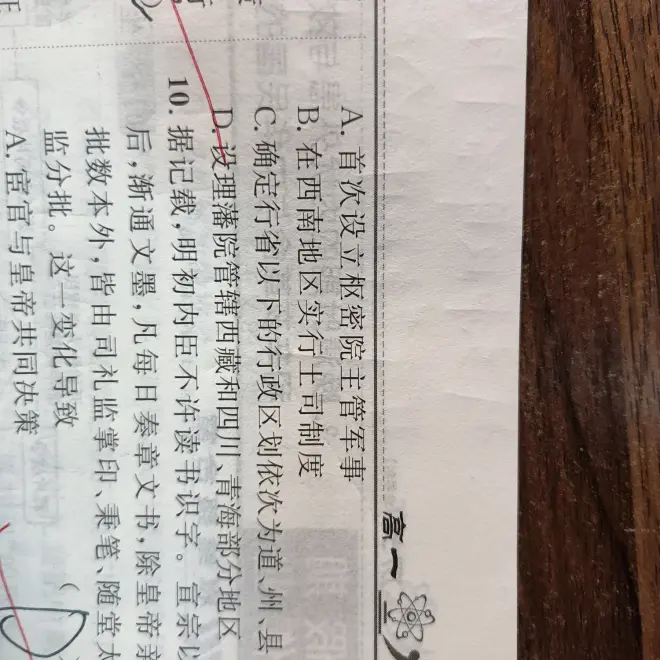 A. 首次设立枢密院主管军事
B. 在西南地区实行土司制度
C. 确定行省以下的行政区划依次为道、州、县
D. 设理藩院管辖西藏和四川、青海部分地区
10. 据记载,明初内臣不许读书识字。宣宗以
后,渐通文墨,凡每日奏章文书,除皇帝亲
批数本外,皆由司礼监掌印、秉笔、随堂太
监分批。这一变化导致 (
A. 宦官与皇帝共同决策
高一